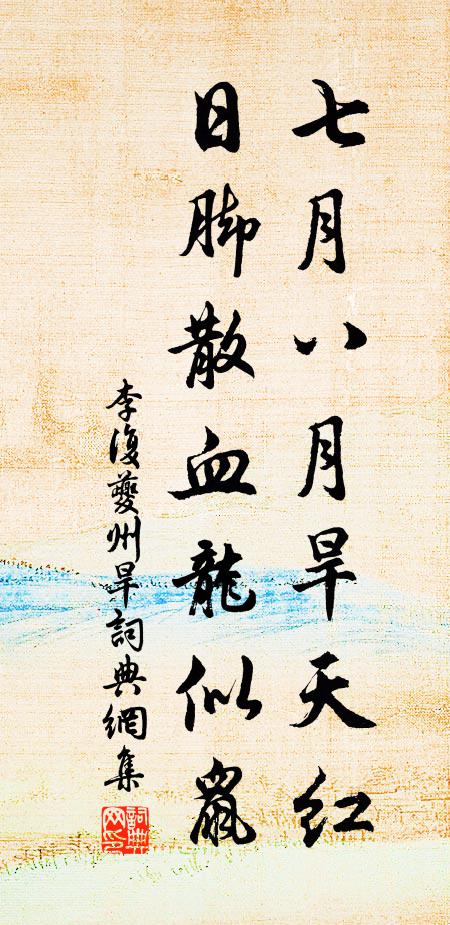 七月八月旱天红
日脚散血龍似鼠
李復夔州旱詞典網集
詞典网印